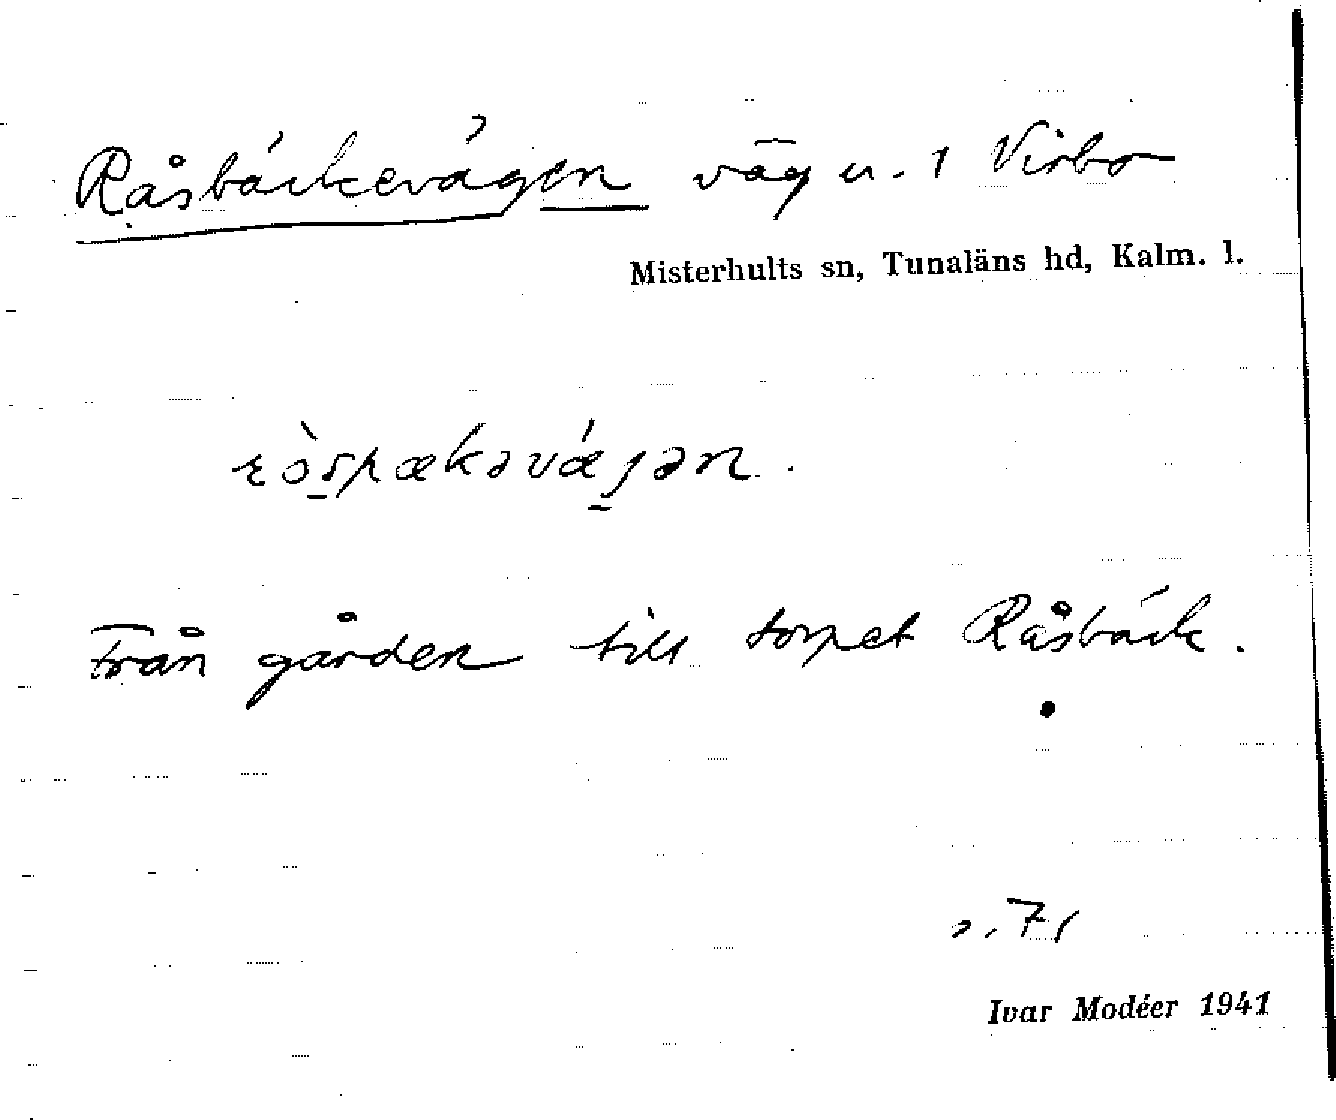 Råsbäckevägen väg u. 1 Virbo
Misterhults sn, Tunaläns hd, Kalm. l.
Från gården till torpet Råsbäck.
s. 71
Ivar Modéer 1941